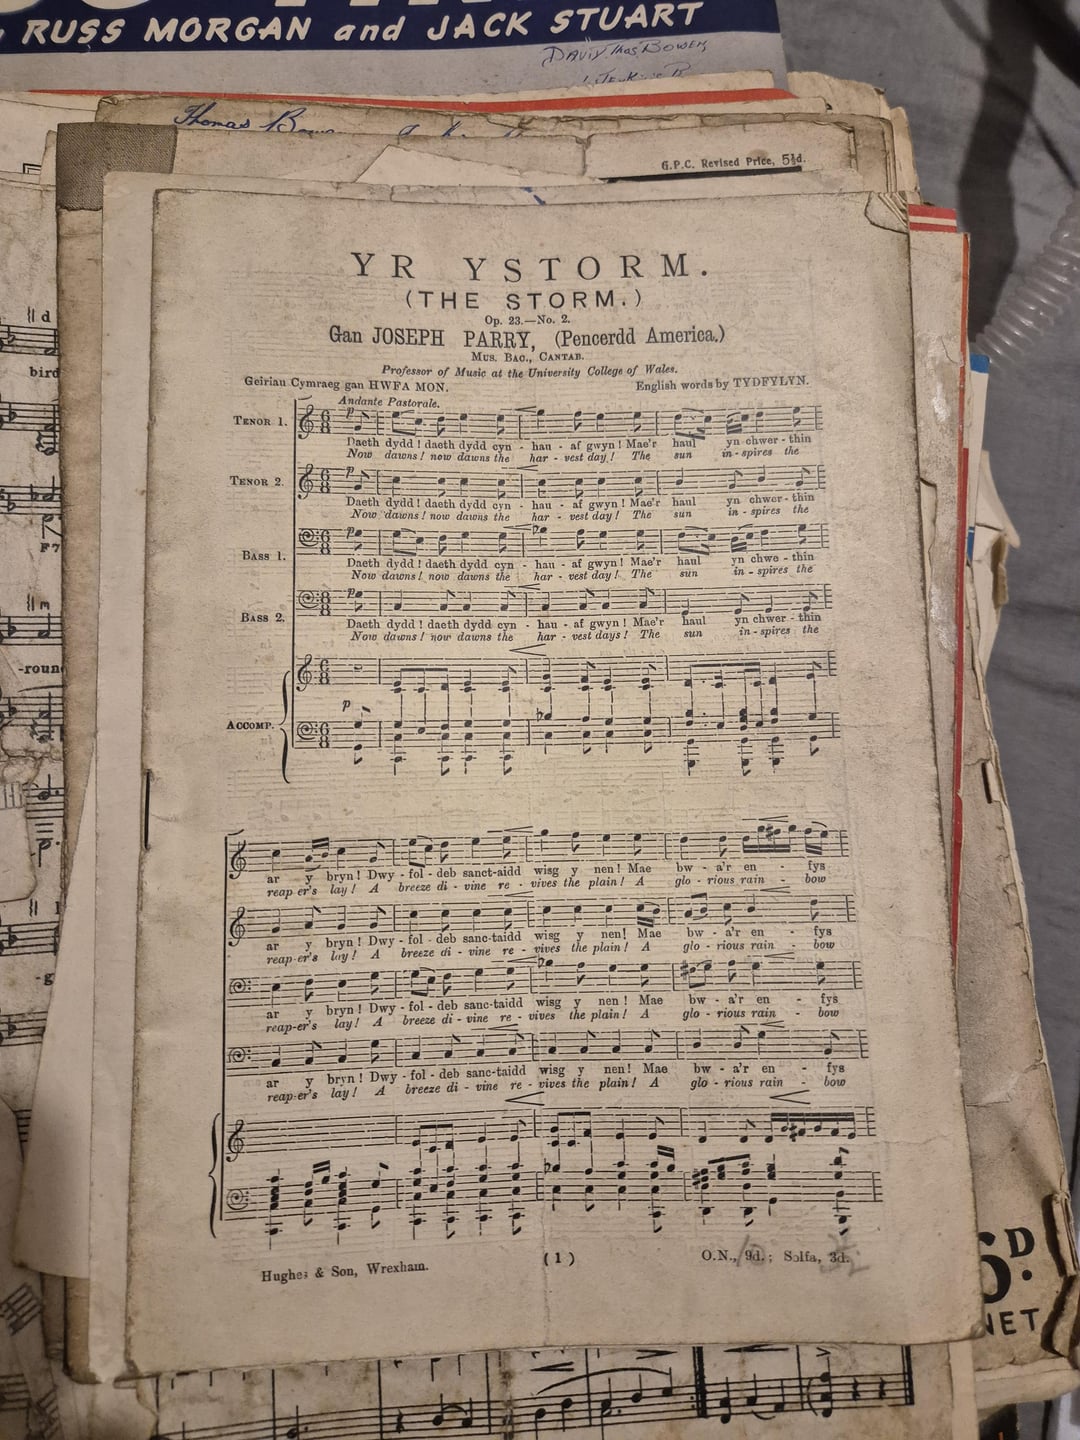 RUSS MORGAN and JACK STUART
Thomas
G.P.C. Revised Price, 5½d.
YR YSTORM.
(THE STORM.)
Op. 23.—No. 2.
Gan JOSEPH PARRY, (Pencerdd America.)
Mus. Bac., Cantab.
Professor of Music at the University College of Wales.
Geiriau Cymraeg gan HWFA MON. English words by TYDFYLYN.
Andante Pastorale.
Tenor 1.
p
Daeth dydd! daeth dydd cyn - hau - af gwyn! Mae'r haul yn chwer - thin
Now dawns! now dawns the har - vest day! The sun in - spires the
Tenor 2.
p
Daeth dydd! daeth dydd cyn - hau - af gwyn! Mae'r haul yn chwer - thin
Now dawns! now dawns the har - vest day! The sun in - spires the
Bass 1.
p
Daeth dydd! daeth dydd cyn - hau - af gwyn! Mae'r haul yn chwe - thin
Now dawns! now dawns the har - vest day! The sun in - spires the
Bass 2.
p
Daeth dydd! daeth dydd cyn - hau - af gwyn! Mae'r haul yn chwer - thin
Now dawns! now dawns the har - vest days! The sun in - spires the
Accomp.
p
ar y bryn! Dwy - fol - deb sanct-aidd wisg y nen! Mae bw - a'r en - fys
reap-er's lay! A breeze di - vine re - vives the plain! A glo - rious rain - bow
ar y bryn! Dwy - fol - deb sanc-taidd wisg y nen! Mae bw - a'r en - fys
reap-er's lay! A breeze di - vine re - vives the plain! A glo - rious rain - bow
ar y bryn! Dwy - fol - deb sanc-taidd wisg y nen! Mae bw - a'r en - fys
reap-er's lay! A breeze di - vine re - vives the plain! A glo - rious rain - bow
ar y bryn! Dwy - fol - deb sanc-taidd wisg y nen! Mae bw - a'r en - fys
reap-er's lay! A breeze di - vine re - vives the plain! A glo - rious rain - bow
Hughes & Son, Wrexham. (1) O.N., 9d.; Solfa, 3d.
d
bird
F7
m
-roun
1
-g
6D.
NET